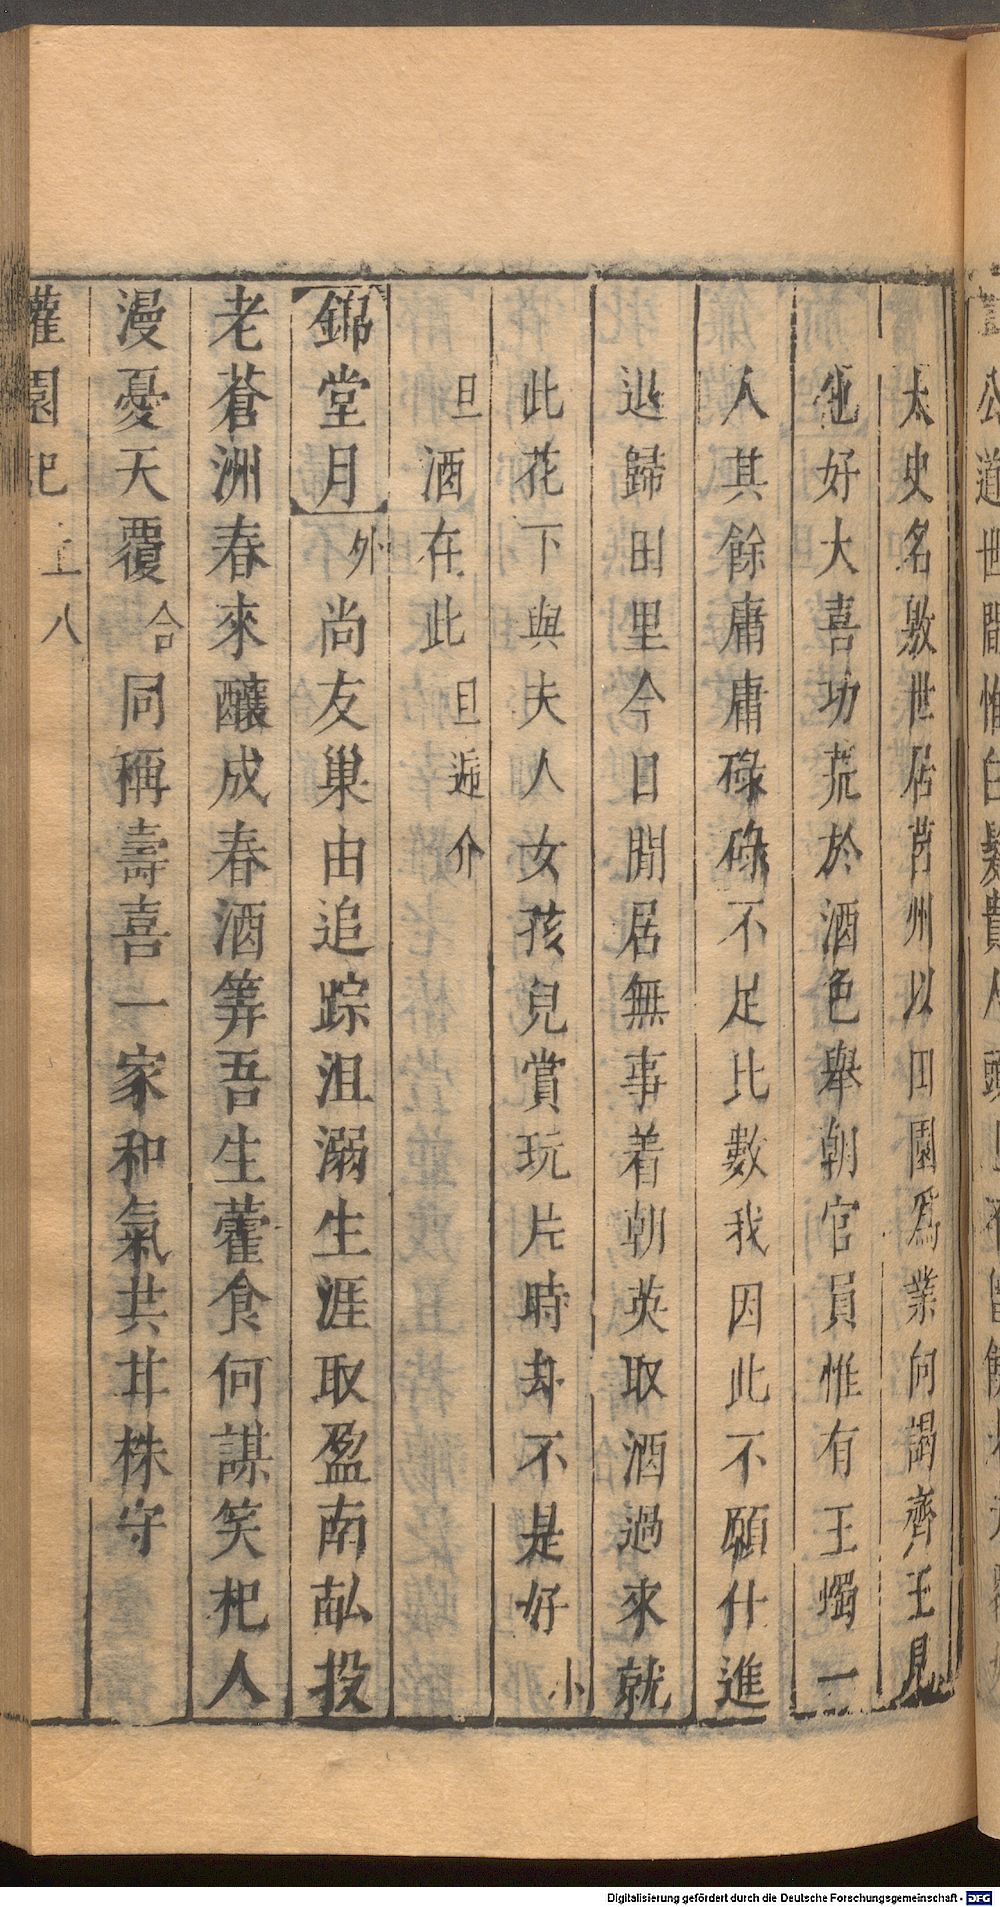 公道世間惟白髮貴人頭上
太史名敫世居莒州以田園爲業向謁齊王見
他好大喜功荒於酒色舉朝官員惟有王蠋一
人其餘庸庸碌碌不足比數我因此不願仕進
退歸田里今日閒居無事着朝英取酒過來就
此花下與夫人女孩兒賞玩片時却不是好小
旦酒在此旦遞介
錦堂月外尚友巢由追踪沮溺生涯取盈南畝投
老蒼洲春來釀成春酒筭吾生藿食何謀笑杞人
漫憂天覆合同稱壽喜一家和氣共甘株守
灌園記 上 八
Digitalisierung gefördert durch die Deutsche Forschungsgemeinschaft - DFG